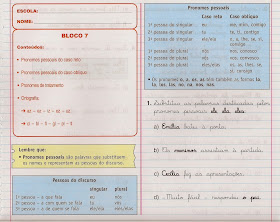 ESCOLA:
NOME:
BLOCO 7
Conteúdos:
• Pronomes pessoais do caso reto
• Pronomes pessoais do caso oblíquo
• Pronomes de tratamento
• Ortografia
Lembre que:
• Pronomes pessoais são palavras que substituem
os nomes e representam as pessoas do discurso.
Pessoas do discurso
singular plural
1ª pessoa - a que fala eu nós
2ª pessoa - a com quem se fala tu vós
3ª pessoa - a de quem se fala ele/ela eles/elas
Pronomes pessoais
Caso reto Caso oblíquo
1ª pessoa do singular eu me, mim, comigo
2ª pessoa do singular tu te, ti, contigo
3ª pessoa do singular ele/ela
1ª pessoa do plural nós nos, conosco
2ª pessoa do plural vós vos, convosco
3ª pessoa do plural eles/elas
• Os pronomes o, a, os, as têm também as formas: lo,
la, los, las, no, na, nos, nas.
1. Substitua as palavras destacadas pelos
pronomes pessoais
a) Emília bateu à porta.
b) Os meninos assistiam à partida.
c) Cecília fez as apresentações.
d) - Muito fácil - respondeu o pai.